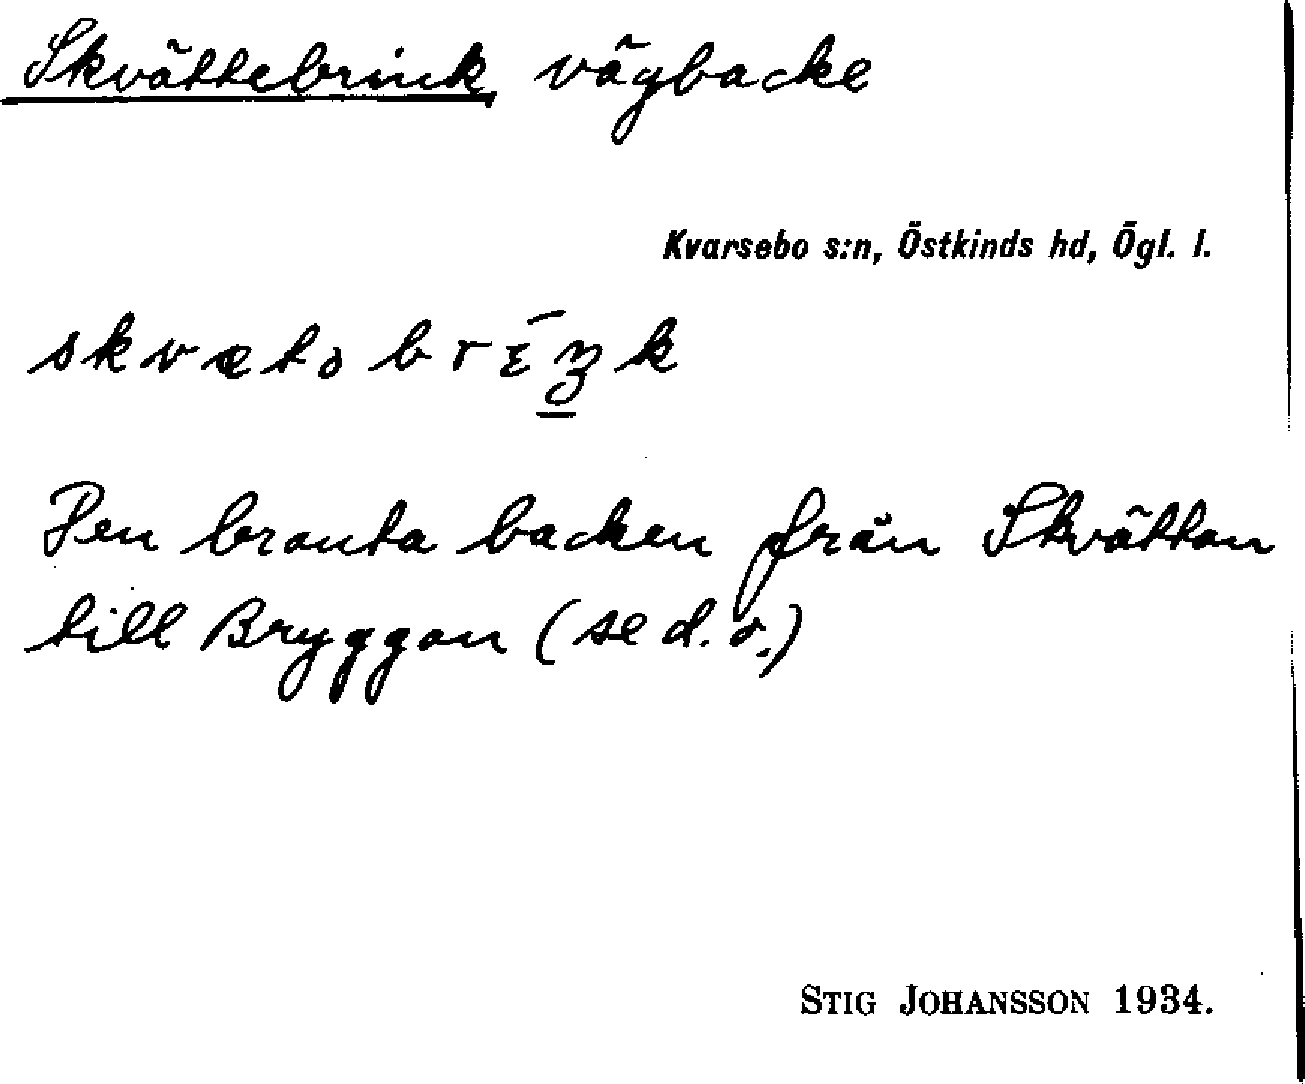 Skvättebrink, vägbacke
Kvarsebo s:n, Östkinds hd, Ögl. l.
Den branta backen från Skvättan
till Bryggan (se d.o.)
STIG JOHANSSON 1934.